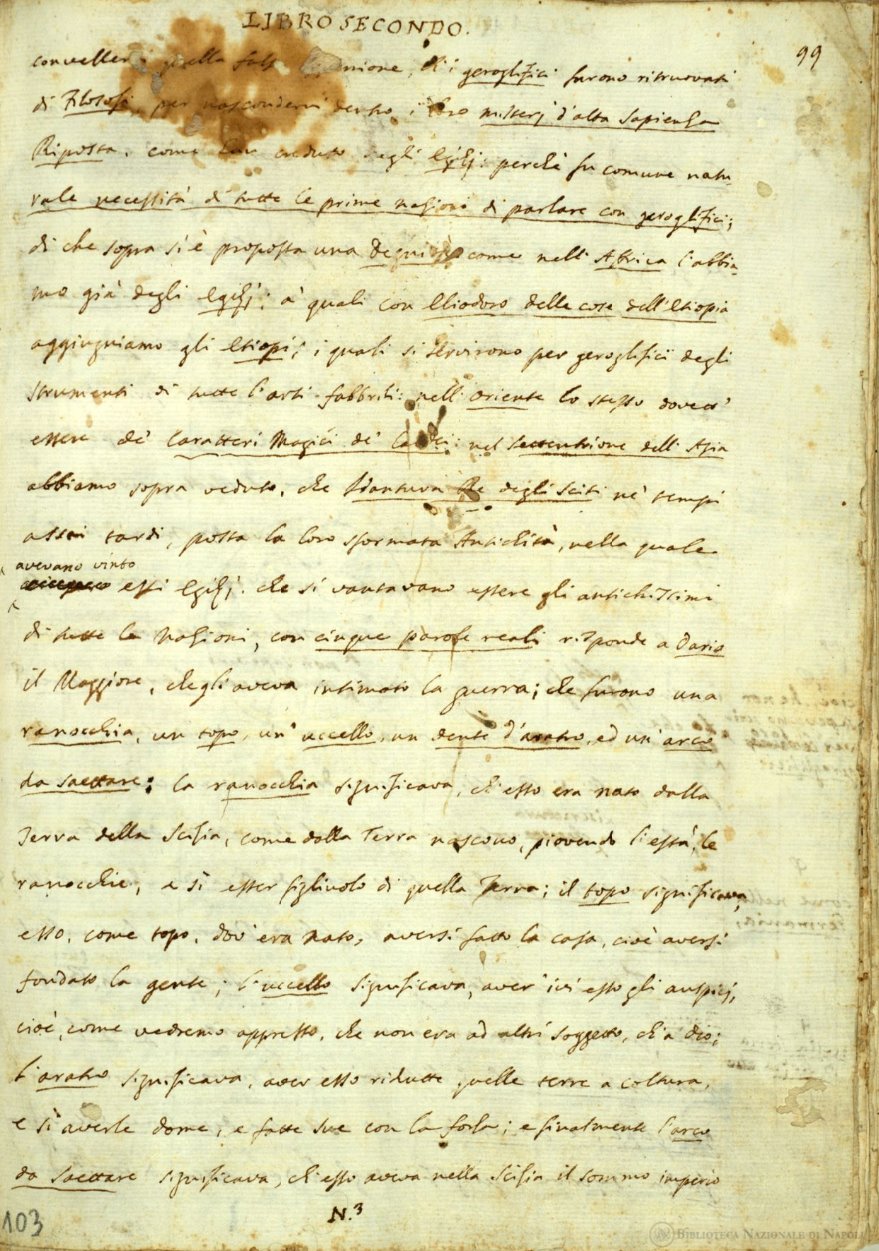 LIBRO SECONDO.
99
conveller quella fals opinione, ch'i geroglifici furono ritruovati
di Filosofi, per nascondervi dentro i loro misterj d'alta Sapienza
Riposta, come han creduto degli Egizj: perchè fu comune natu-
rale necessità di tutte le prime nazioni di parlare con geroglifici;
di che sopra si è proposta una Degnità come nell'Affrica l'abbia-
mo già degli Egizj; a' quali con Eliodoro delle cose dell'Etiopia
aggiugniamo gli Etiopi; i quali si servirono per geroglifici degli
strumenti di tutte l'arti fabbrili: nell'Oriente lo stesso dovett'
essere de' Caratteri Magici de' Caldei: nel Settentrione dell'Asia
abbiamo sopra veduto, che Idantura Re degli Sciti ne' tempi
assai tardi, posta la loro sformata Antichità, nella quale
avevano vinto
essi Egizj, che si vantavano essere gli antichissimi
di tutte le Nazioni, con cinque parole reali risponde a Dario
il Maggiore, che gli aveva intimato la guerra; che furono una
ranocchia, un topo, un' uccello, un dente d'aratro, ed un' arco
da saettare: la ranocchia significava, ch'esso era nato dalla
Terra della Scizia, come dalla Terra nascono, piovendo l'està, le
ranocchie, e sì esser figliuolo di quella Terra; il topo significava,
esso, come topo, dov' era nato, aversi fatto la casa, cioè aversi
fondato la gente; l'uccello significava, aver' ivi esso gli auspicj,
cioè, come vedremo appresso, che non era ad altri soggetto, ch'a Dio;
l'aratro significava, aver esso ridutte quelle terre a coltura,
e sì averle dome, e fatte sue con la forza; e finalmente l'arco
da saettare significava, ch'esso aveva nella Scizia il sommo imperio
N.3
103
BIBLIOTECA NAZIONALE DI NAPOLI